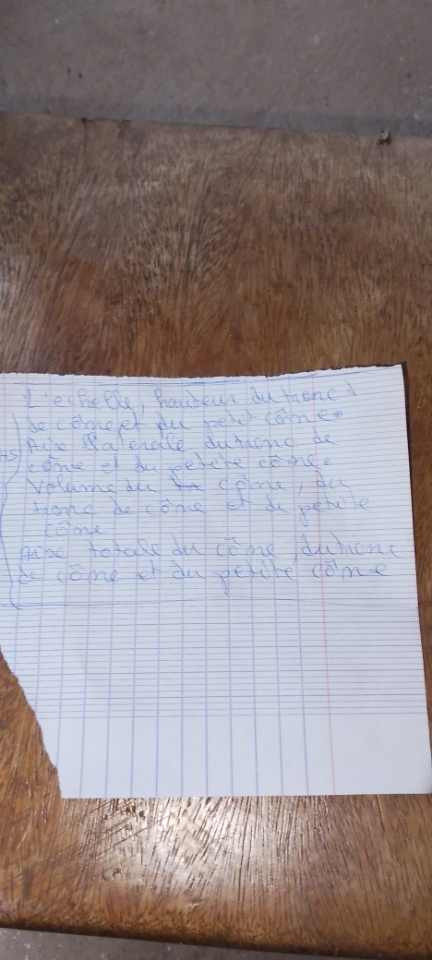 L'echelle, hauteur du tronc
de cône et du petit cône.
Aire latérale du tronc de
cône et du petite cône.
Volume du cône, du
tronc de cône et du petite
cône
aire totale du cône, du tronc
de cône et du petite cône